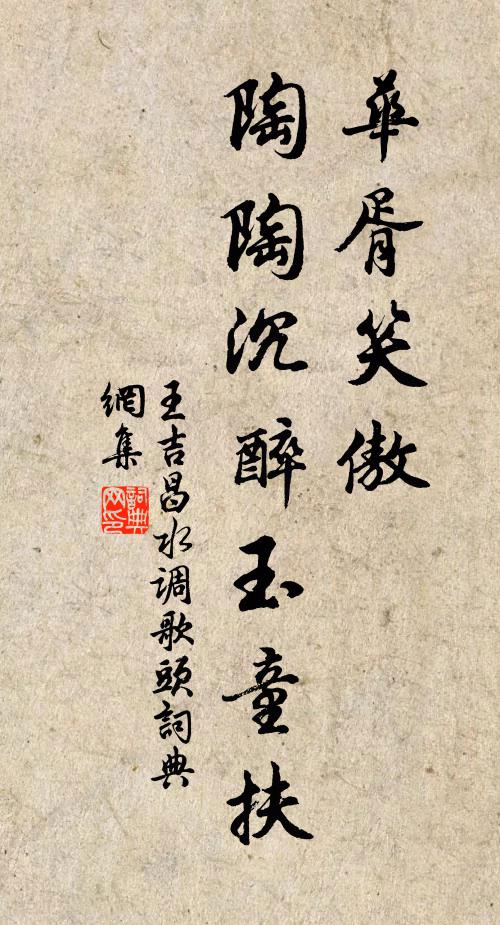 華胥笑傲
陶陶沉醉玉童扶
王吉昌水調歌頭詞典
網集
詞典
网印